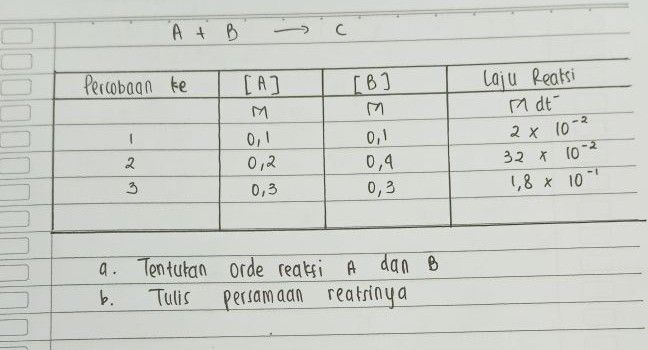 A + B → C
Percobaan ke [A] [B] Laju Reaksi
M M M dt⁻
1 0,1 0,1 2 x 10⁻²
2 0,2 0,4 32 x 10⁻²
3 0,3 0,3 1,8 x 10⁻¹
a. Tentukan orde reaksi A dan B
b. Tulis persamaan reaksinya